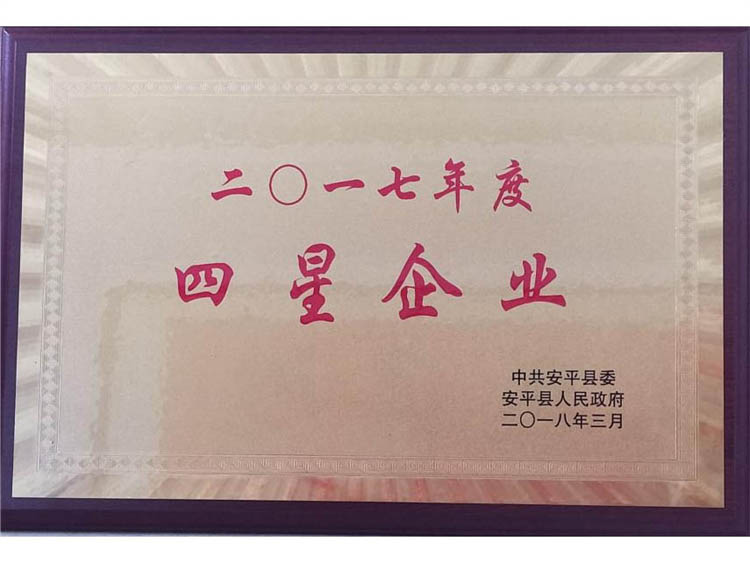 二〇一七年度
四星企业
中共安平县委
安平县人民政府
二〇一八年三月